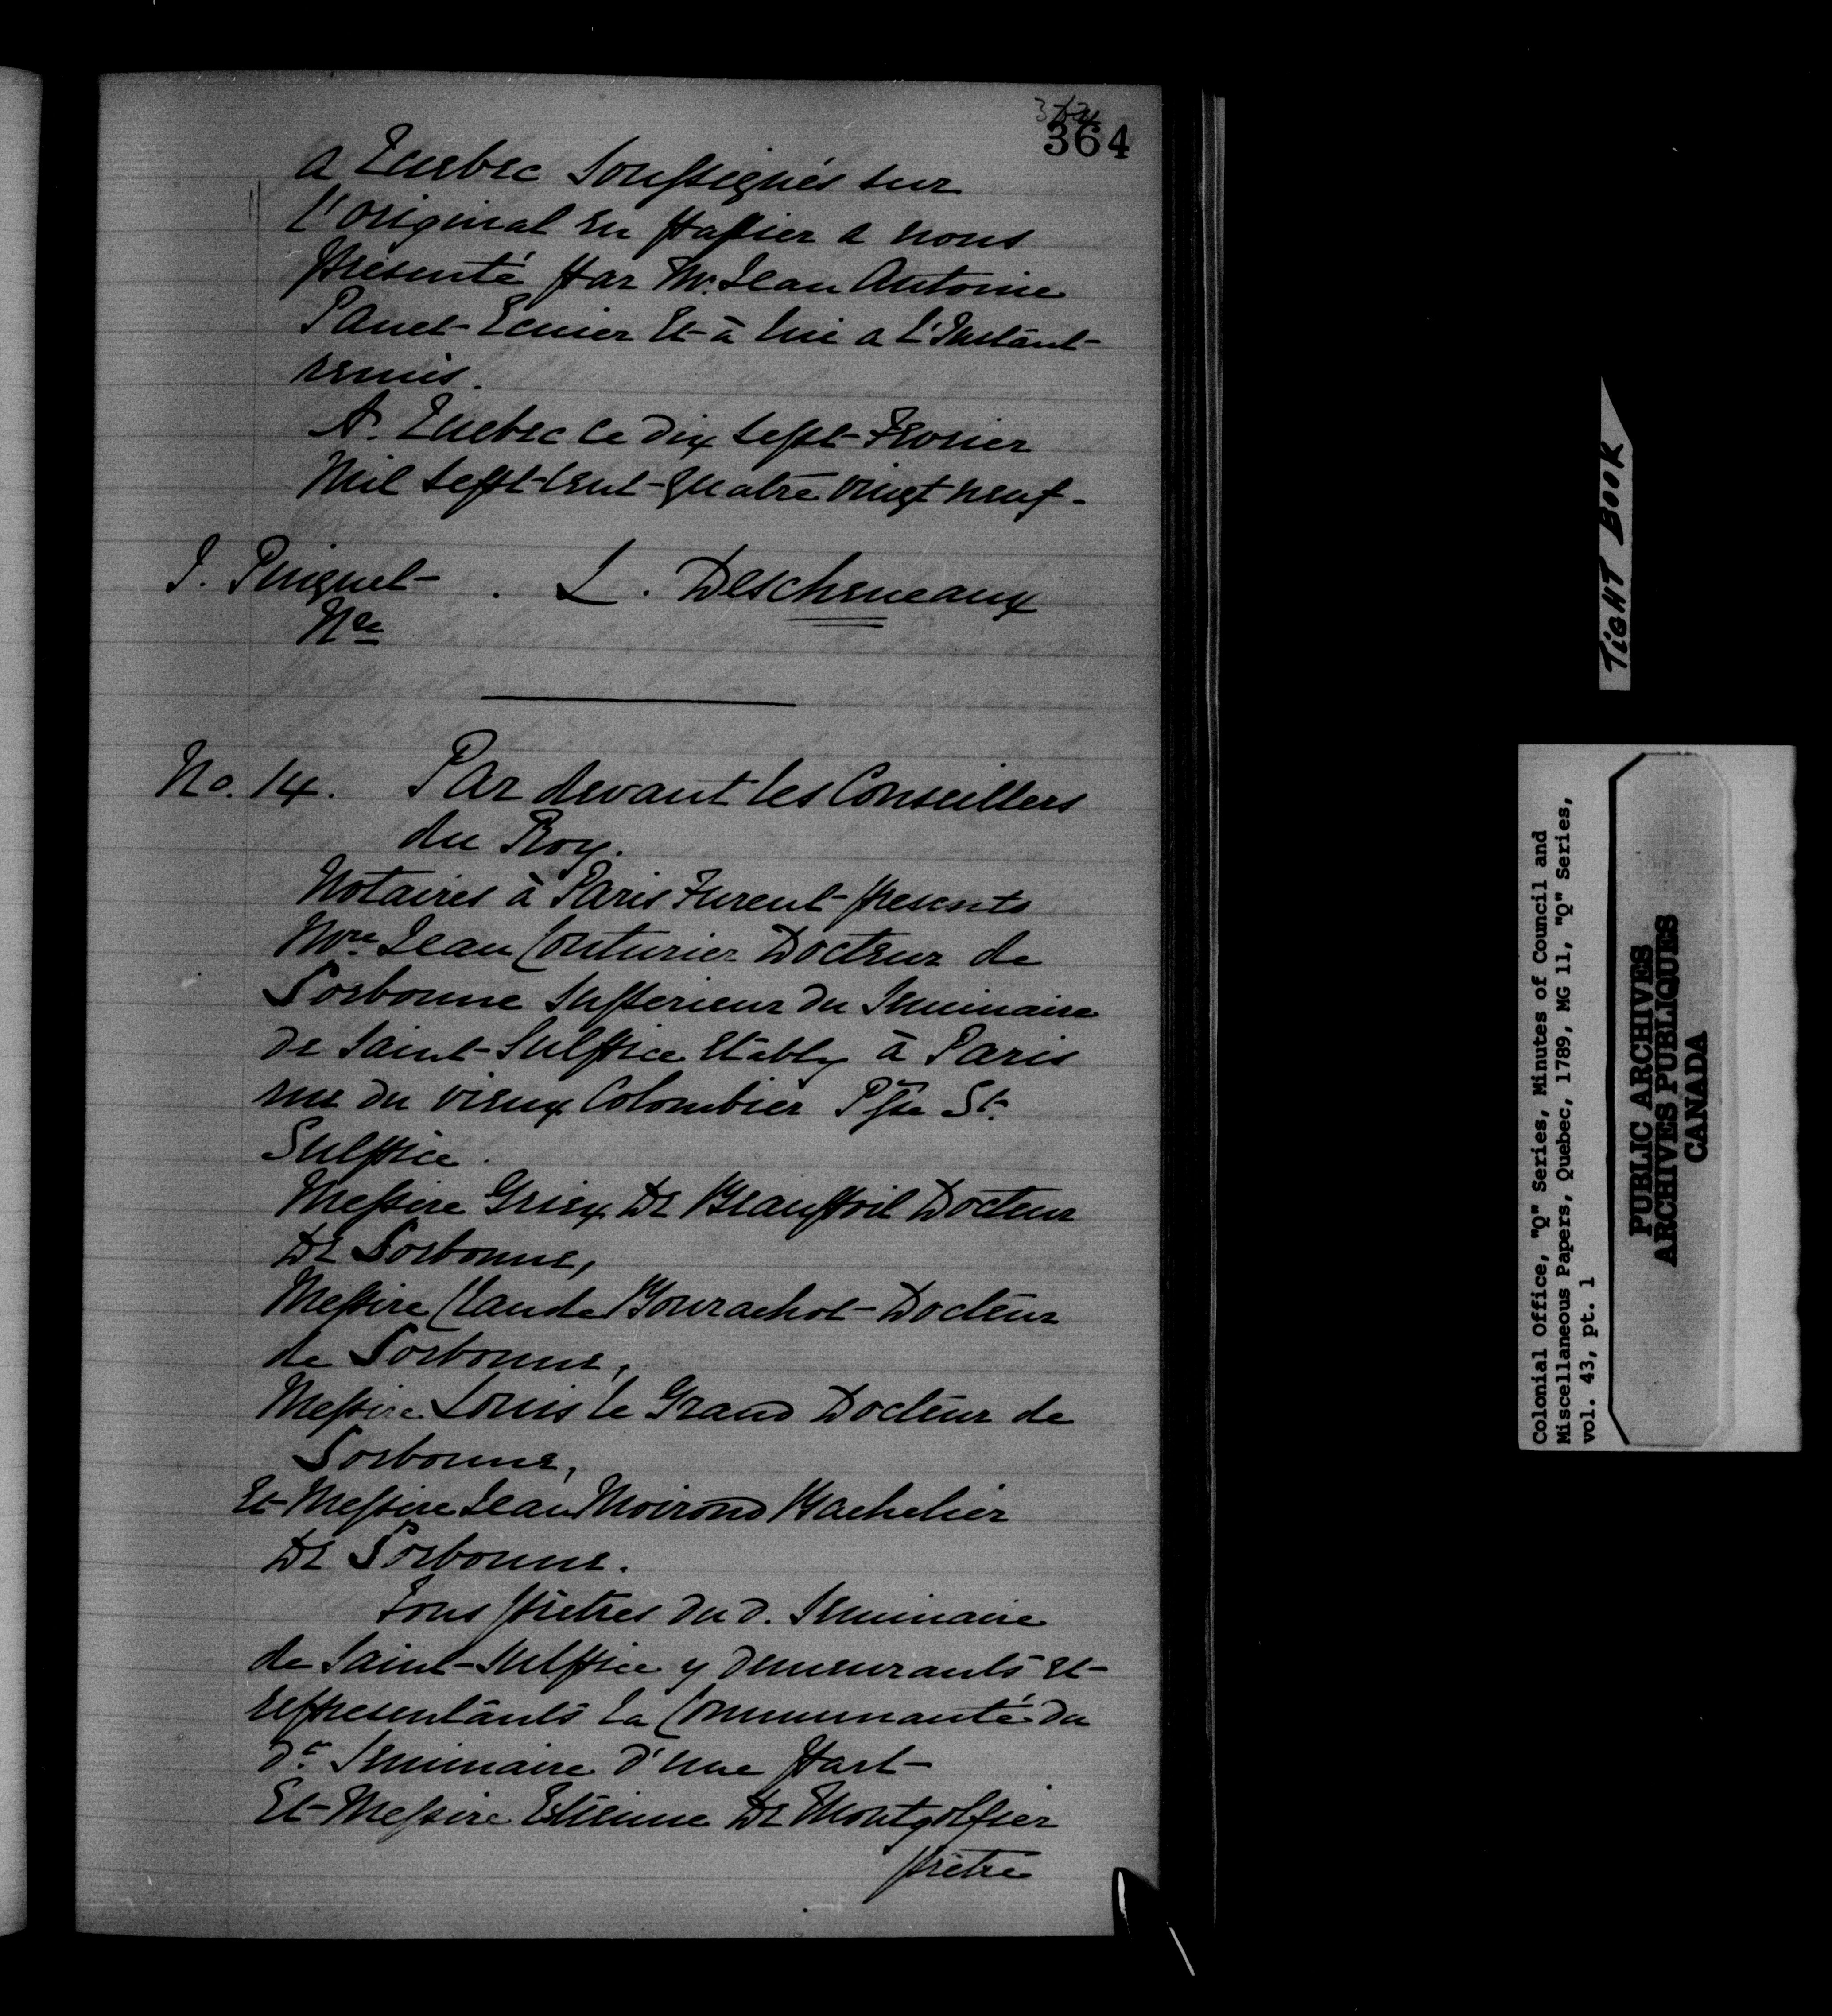 364
a Quebec Soussignés sur
l'Original en papier a nous
presenté par Mr. Jean Antoine
Panet Ecuier Et à lui a l'Instant
remis.
A. Quebec le dix sept Fevrier
Mil sept Cent quatre vingt neuf.
J. Pinguet . L. Descheneaux
Nre
No. 14. Par devant les Conseillers
du Roy.
Notaires à Paris Furent presents
Mre Jean Couturier Docteur de
Sorbonne Superieur du Seminaire
de Saint Sulpice Etably à Paris
rue du vieux Colombier Psse St.
Sulpice.
Messire Grieu De Beaupoil Docteur
De Sorbonne,
Messire Claude Bourachot Docteur
de Sorbonne,
Messire Louis le Grand Docteur de
Sorbonne,
Et Messire Jean Moirond Bachelier
De Sorbonne.
Tous prêtres du d. Seminaire
de Saint Sulpice y demeurants et
representants La Communauté du
dt. Seminaire d'une part
Et Messire Estienne De Montgolfier
prêtre
TIGHT BOOK
Colonial Office, "Q" Series, Minutes of Council and
Miscellaneous Papers, Quebec, 1789, MG 11, "Q" Series,
vol. 43, pt. 1
PUBLIC ARCHIVES
ARCHIVES PUBLIQUES
CANADA